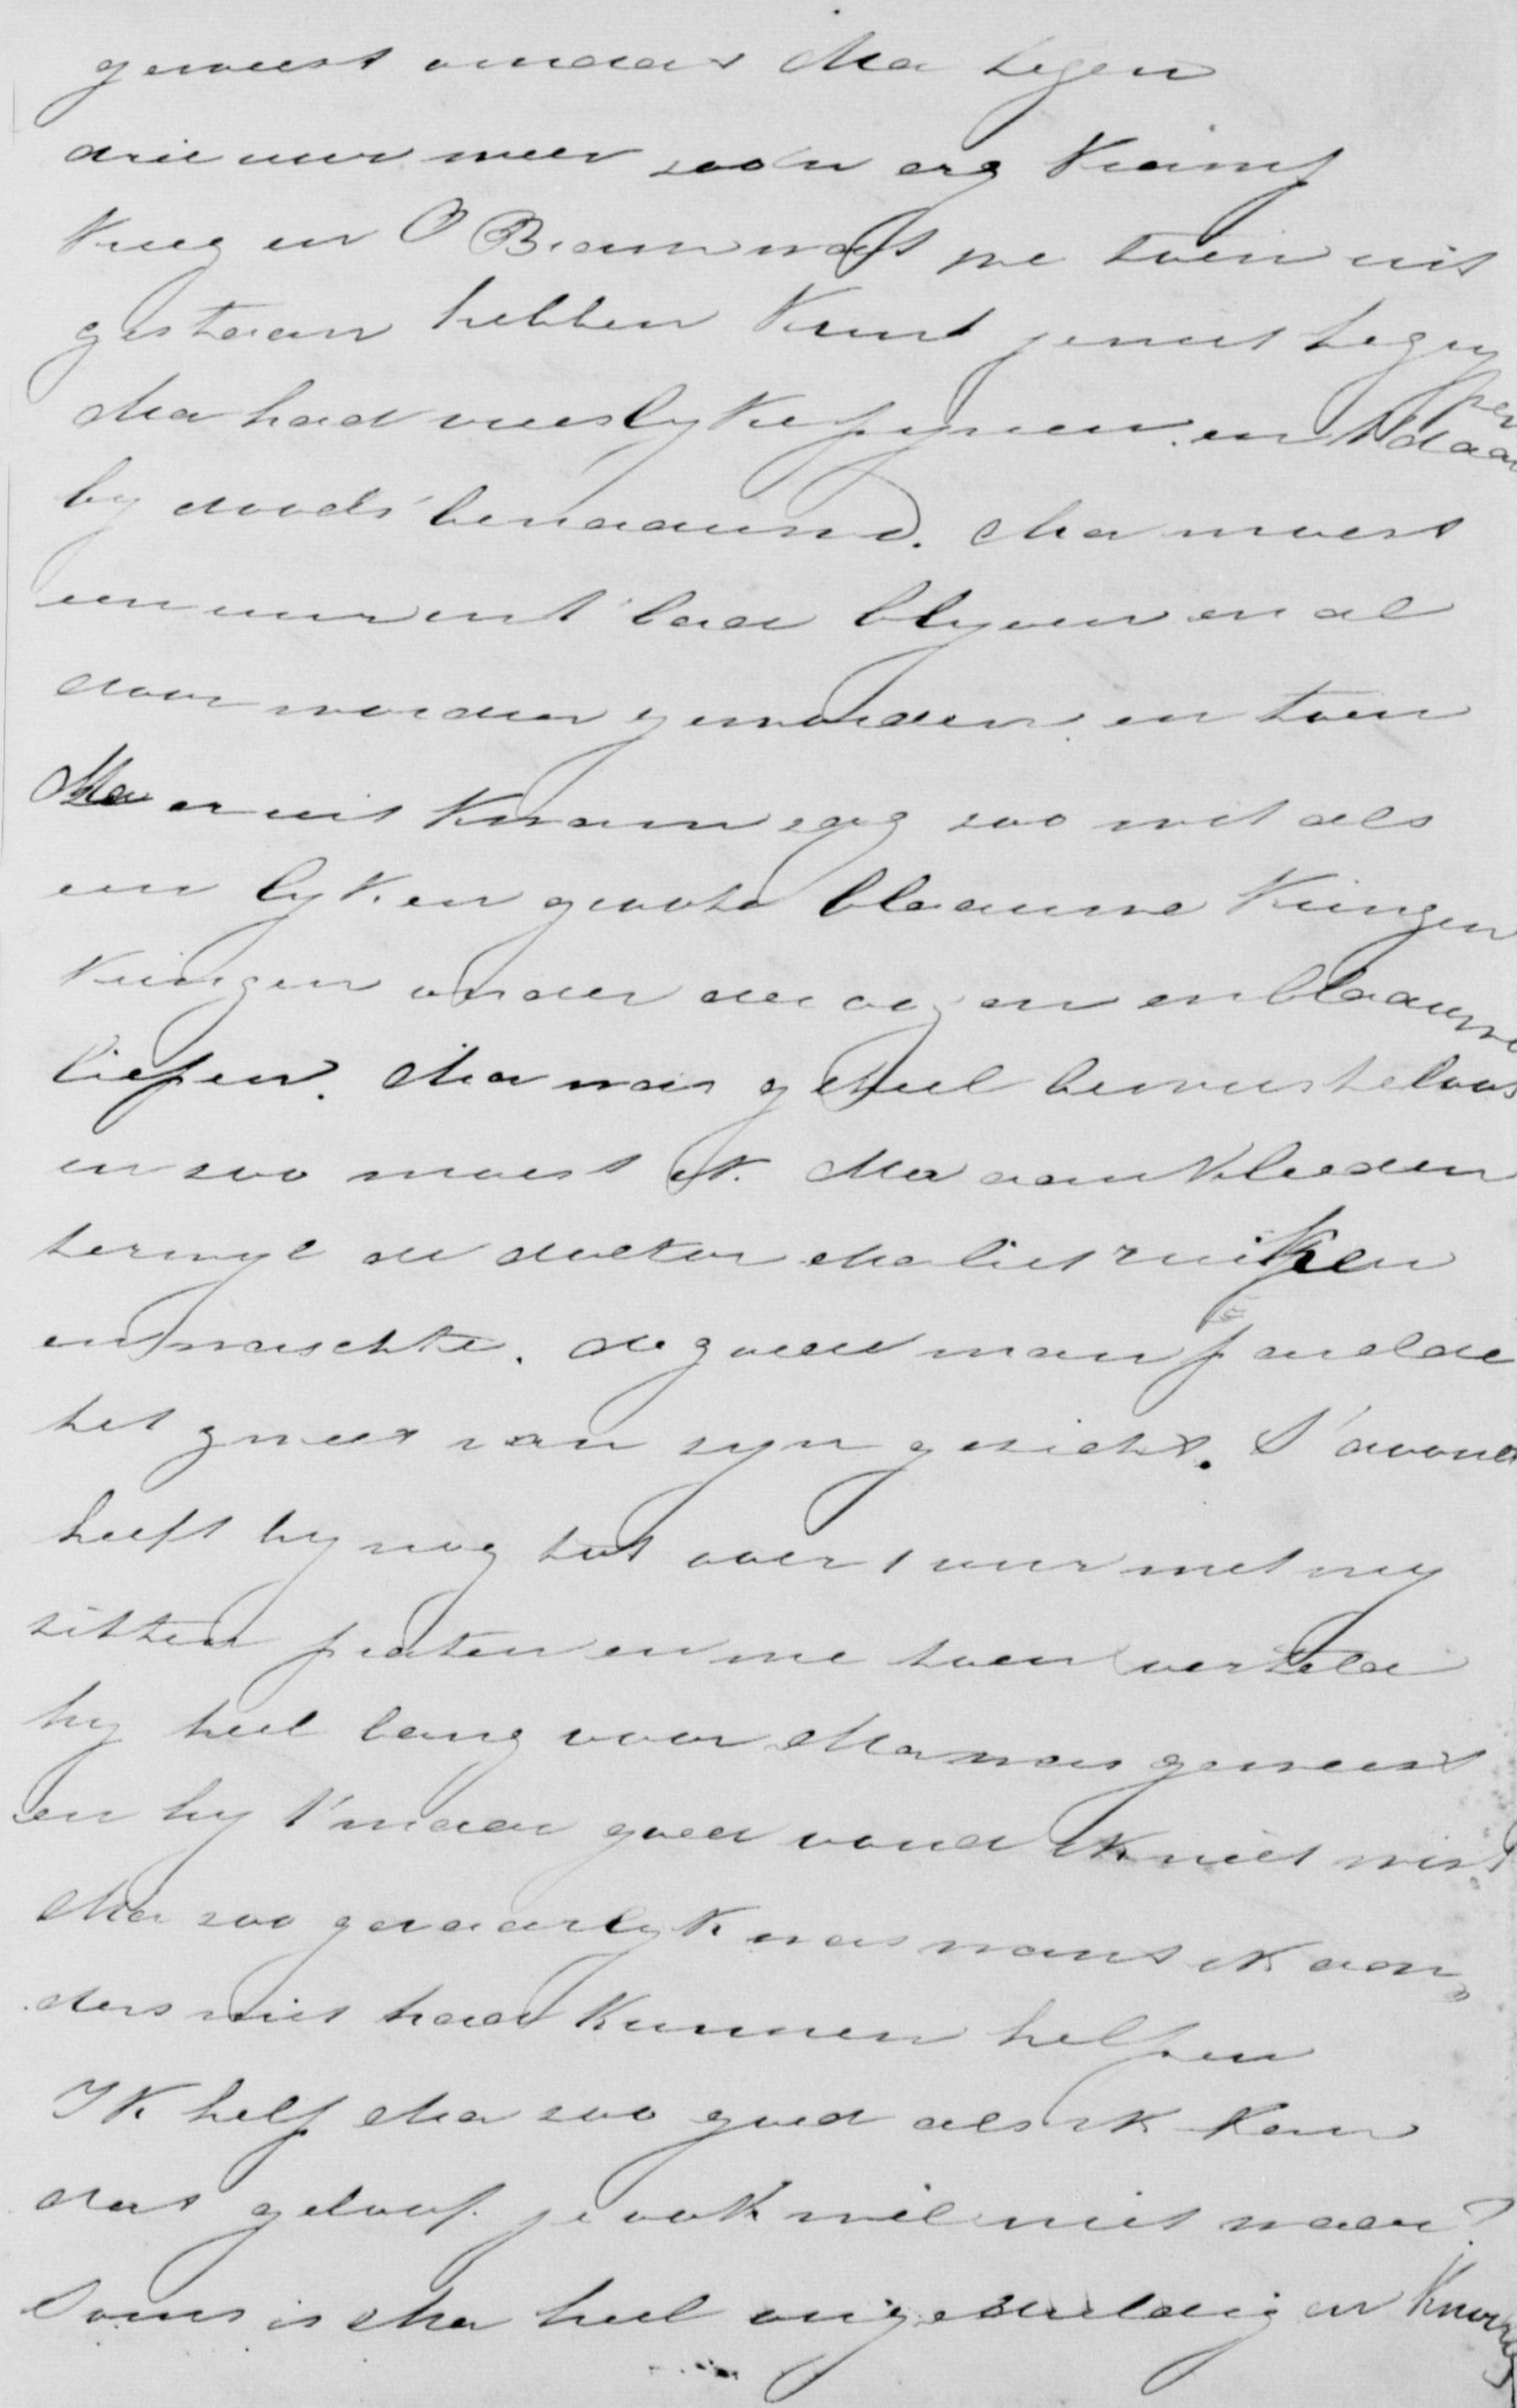 geweest omdat Ma tegen
drie uur weer zoo'n erg kramp
kreeg en O Bram wat we toen uit
gestaan hebben kunt je niet begry
pen
Ma had vreeslyke pynen en daar
by doods benaauwd. Ma moest
een uur in 't bad blyven en al
door worden gewreven en toen
Ma er uit kwam zag zoo wit als
een lyk en groote blaauwe kringen
kringen onder de oogen en blaauwe
lippen. Ma was geheel bewusteloos
en zoo moest ik Ma aankleeden
terwyl de doctor Ma liet ruiken
en waschte. de goede man parelde
het zweet van zyn gezicht. S'avond
heeft hy nog tot over 1 uur met my
zitten praten en me toen vertelde
hy heel bang voor Ma was geweest
en hy 't maar goed vond ik niet wist
Ma zoo gevaarlyk was want ik aan
ders niet had kunnen helpen
Ik help Ma zoo goed als ik kan
dat geloof je ook wel niet waar?
Soms is Ma heel ongeduldig en knorrig